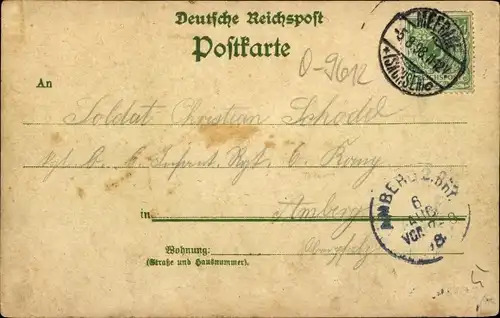 Deutsche Reichspost
Postkarte
MEERANE
(SACHSEN)
O-9612
An
Soldat Christian Schödel
Kgl. b. 6. Infant. Rgt. 6. Komp
in Amberg
Oberpfalz
AMBERG 2. BHF.
6
AUG
VOR.
98
Wohnung:
(Straße und Hausnummer).